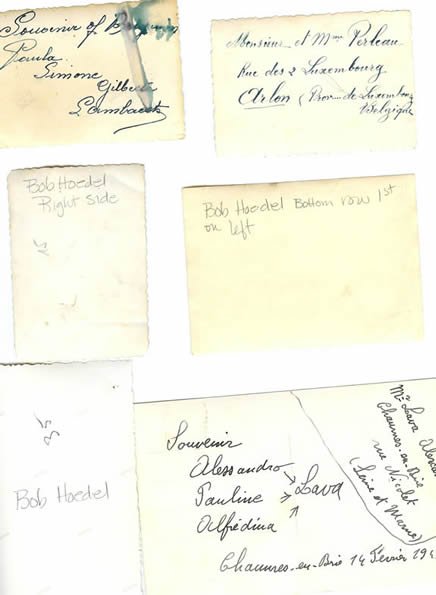 Souvenir of
Paula
Simone
Gilberte
Lambaets
Monsieur et Mme Perleau
Rue des 2 Luxembourg
Arlon (Prov. de Luxembourg
Belgique
Bob Hoedel
Right side
Bob Hoedel Bottom row 1st
on left
35
Bob Hoedel
Souvenir
Alessandro
Pauline Lava
Alfrédina
Chaumes-en-Brie 14 Février 194
Mr Lava
Chaumes-en-Brie
rue Nicolet
(Seine et Marne)